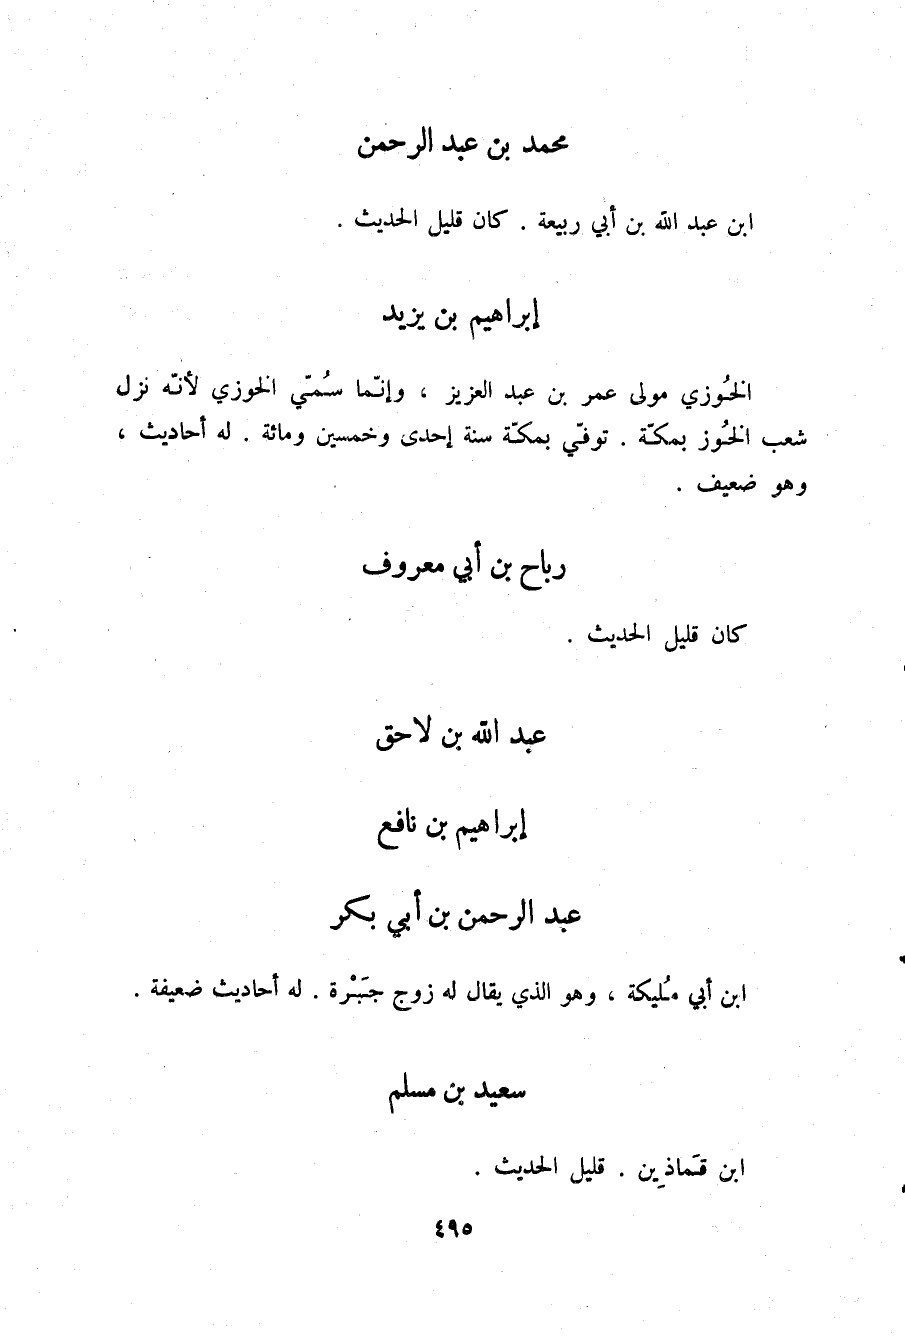 محمد بن عبد الرحمن
ابن عبد الله بن أبي ربيعة . كان قليل الحديث .
إبراهيم بن يزيد
الخُوزي مولى عمر بن عبد العزيز ، وإنّما سُمّي الخوزي لأنّه نزل
شعب الخُوز بمكّة . توفّي بمكّة سنة إحدى وخمسين ومائة . له أحاديث ،
وهو ضعيف .
رباح بن أبي معروف
كان قليل الحديث .
عبد الله بن لاحق
إبراهيم بن نافع
عبد الرحمن بن أبي بكر
ابن أبي مُليكة ، وهو الذي يقال له زوج جَبْرة . له أحاديث ضعيفة .
سعيد بن مسلم
ابن قَماذِين . قليل الحديث .
٤٩٥